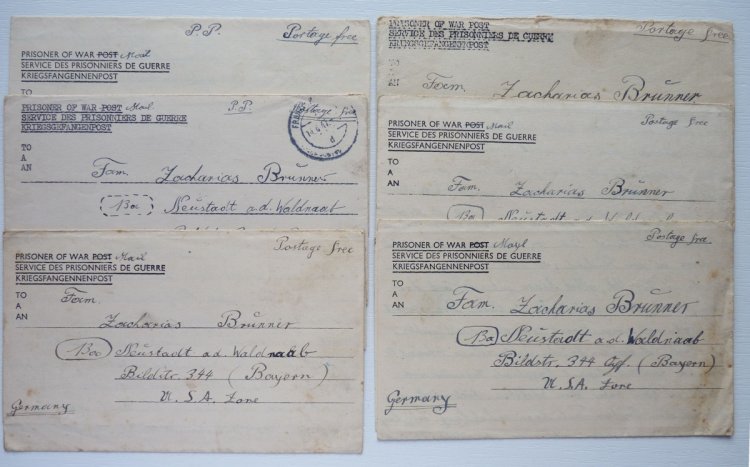 P.P. Postage free
PRISONER OF WAR POST Mail
SERVICE DES PRISONNIERS DE GUERRE
KRIEGSFANGENNENPOST
TO
PRISONER OF WAR POST Mail P.P. Postage free
SERVICE DES PRISONNIERS DE GUERRE
KRIEGSGEFANGENPOST
TO
A
AN
Fam. Zacharias Brunner
13a Neustadt a.d. Waldnaab
Postage free
PRISONER OF WAR POST Mail
SERVICE DES PRISONNIERS DE GUERRE
KRIEGSFANGENNENPOST
TO
A
AN
Fam.
Zacharias Brunner
13a Neustadt a.d. Waldnaab
Bildstr. 344 (Bayern)
U.S.A. Zone
Germany
PRISONER OF WAR POST
SERVICE DES PRISONNIERS DE GUERRE
Postage free
TO
A
AN
Fam. Zacharias Brünner
Postage free
PRISONER OF WAR POST Mail
SERVICE DES PRISONNIERS DE GUERRE
KRIEGSFANGENNENPOST
TO
A
AN
Fam. Zacharias Brünner
13a Neustadt a.d. Waldnaab
Postage free.
PRISONER OF WAR POST Mayl
SERVICE DES PRISONNIERS DE GUERRE
KRIEGSFANGENNENPOST
TO
A
AN
Fam. Zacharias Brŭnner
13a Neŭstadt a.d. Waldnaab
Bildstr. 344 (Bayern)
U.S.A. Zone
Germany